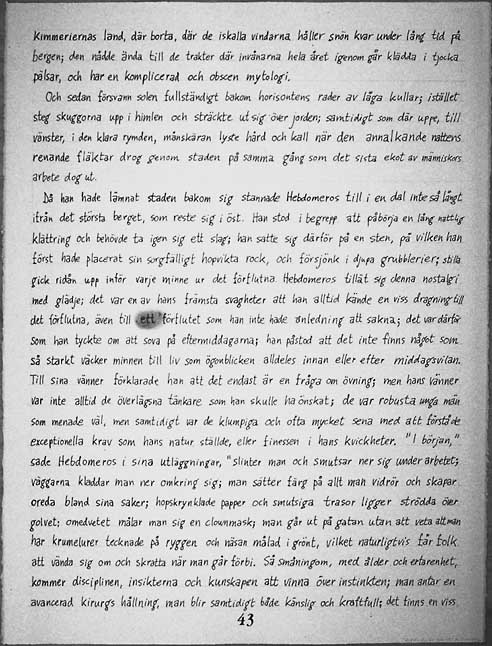 Kimmeriernas land, där borta, där de iskalla vindarna håller snön kvar under lång tid på
bergen; den nådde ända till de trakter där invånarna hela året igenom går klädda i tjocka
pälsar, och har en komplicerad och obscen mytologi.
Och sedan försvann solen fullständigt bakom horisontens rader av låga kullar; istället
steg skuggorna upp i himlen och sträckte ut sig över jorden; samtidigt som där uppe, till
vänster, i den klara rymden, månskäran lyste hård och kall när den annalkande nattens
renande fläktar drog genom staden på samma gång som det sista ekot av människors
arbete dog ut.
Då han hade lämnat staden bakom sig stannade Hebdomeros till i en dal inte så långt
ifrån det största berget, som reste sig i öst. Han stod i begrepp att påbörja en lång nattlig
klättring och behövde ta igen sig ett slag; han satte sig därför på en sten, på vilken han
först hade placerat sin sorgfälligt hopvikta rock, och försjönk i djupa grubblerier; stilla
gick ridån upp inför varje minne ur det förflutna. Hebdomeros tillät sig denna nostalgi
med glädje; det var en av hans främsta svagheter att han alltid kände en viss dragning till
det förflutna, även till ett förflutet som han inte hade anledning att sakna; det var därför
som han tyckte om att sova på eftermiddagarna; han påstod att det inte finns något som
så starkt väcker minnen till liv som ögonblicken alldeles innan eller efter middagsvilan.
Till sina vänner förklarade han att det endast är en fråga om övning; men hans vänner
var inte alltid de överlägsna tänkare som han skulle ha önskat; de var robusta unga män
som menade väl, men samtidigt var de klumpiga och ofta mycket sena med att förstå de
exceptionella krav som hans natur ställde, eller finessen i hans kvickheter. "I början,"
sade Hebdomeros i sina utläggningar, "slinter man och smutsar ner sig under arbetet;
väggarna kladdar man ner omkring sig; man sätter färg på allt man vidrör och skapar
oreda bland sina saker; hopskrynklade papper och smutsiga trasor ligger strödda över
golvet; omedvetet målar man sig en clownmask; man går ut på gatan utan att veta att man
har krumelurer tecknade på ryggen och näsan målad i grönt, vilket naturligtvis får folk
att vända sig om och skratta när man går förbi. Så småningom, med ålder och erfarenhet,
kommer disciplinen, insikterna och kunskapen att vinna över instinkten; man antar en
avancerad kirurgs hållning, man blir samtidigt både känslig och kraftfull; det finns en viss
43